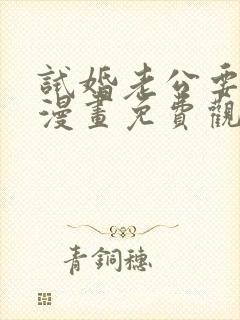 試婚老公要
漫畫免費觀
青銅穗